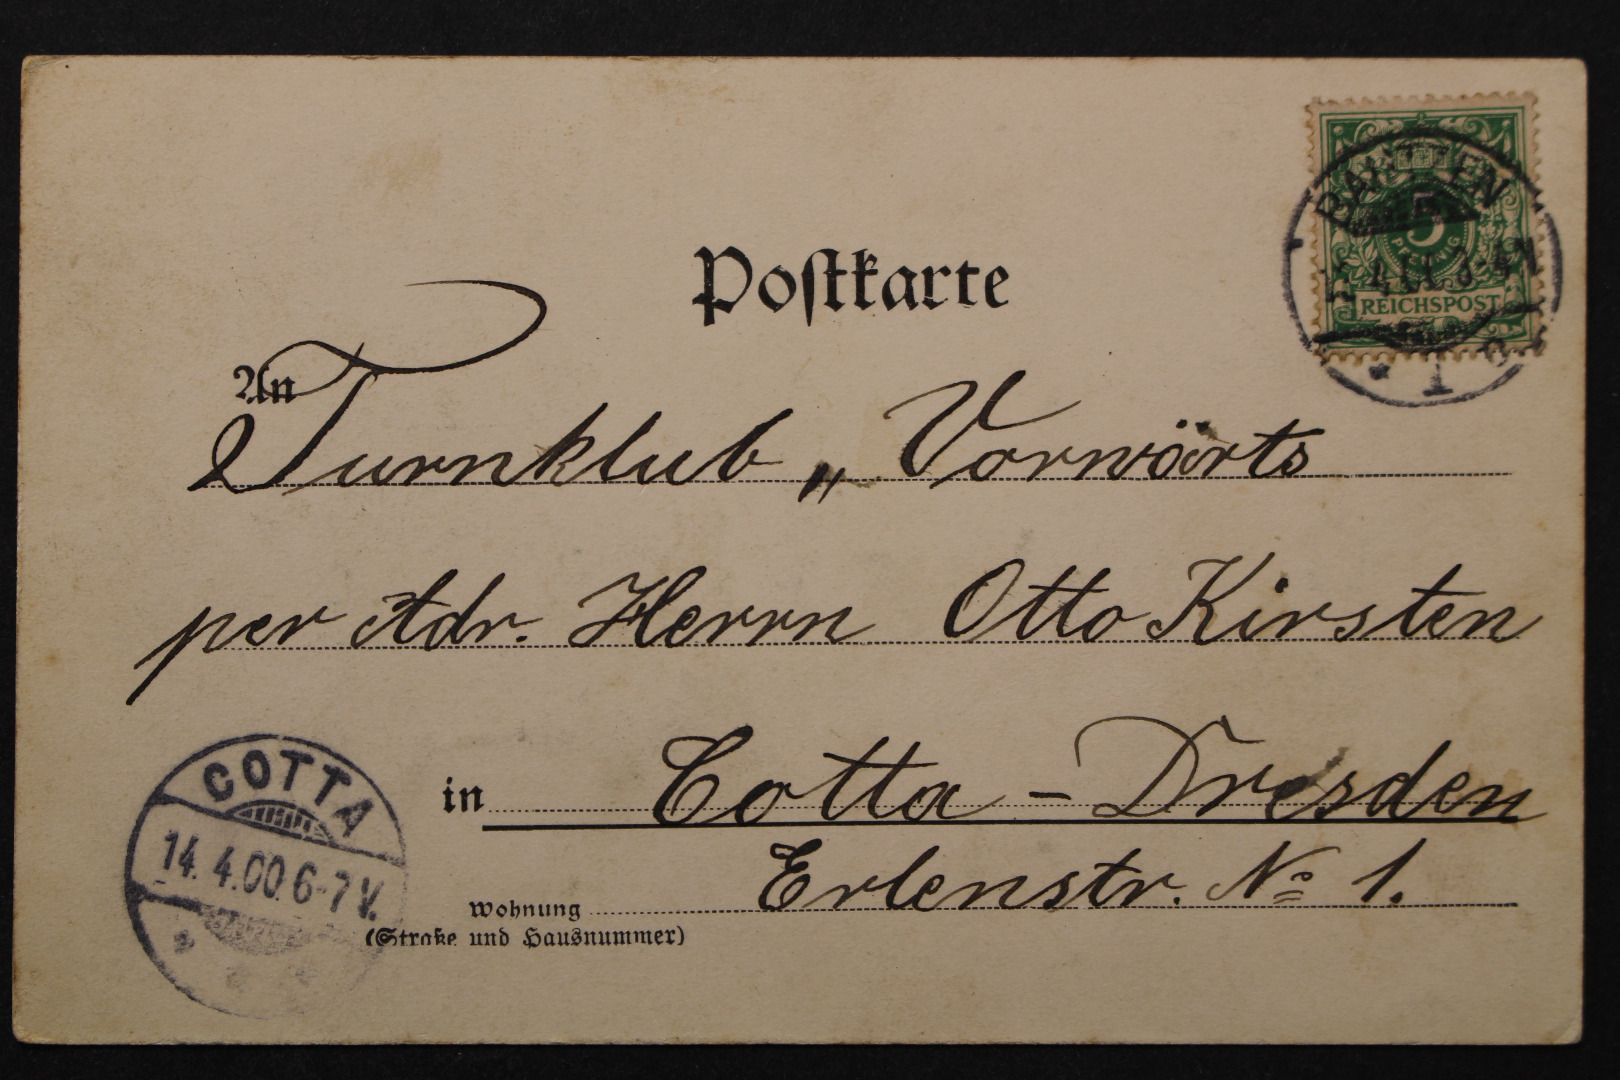 Postkarte
BAUTZEN
5
PFENNIG
REICHSPOST
1
An
Turnklub „Vorwärts
per Adr. Herrn Otto Kirsten
in Cotta - Dresden
Erlenstr. No 1.
Wohnung
(Straße und Hausnummer)
COTTA
14. 4.00 6-7 V.